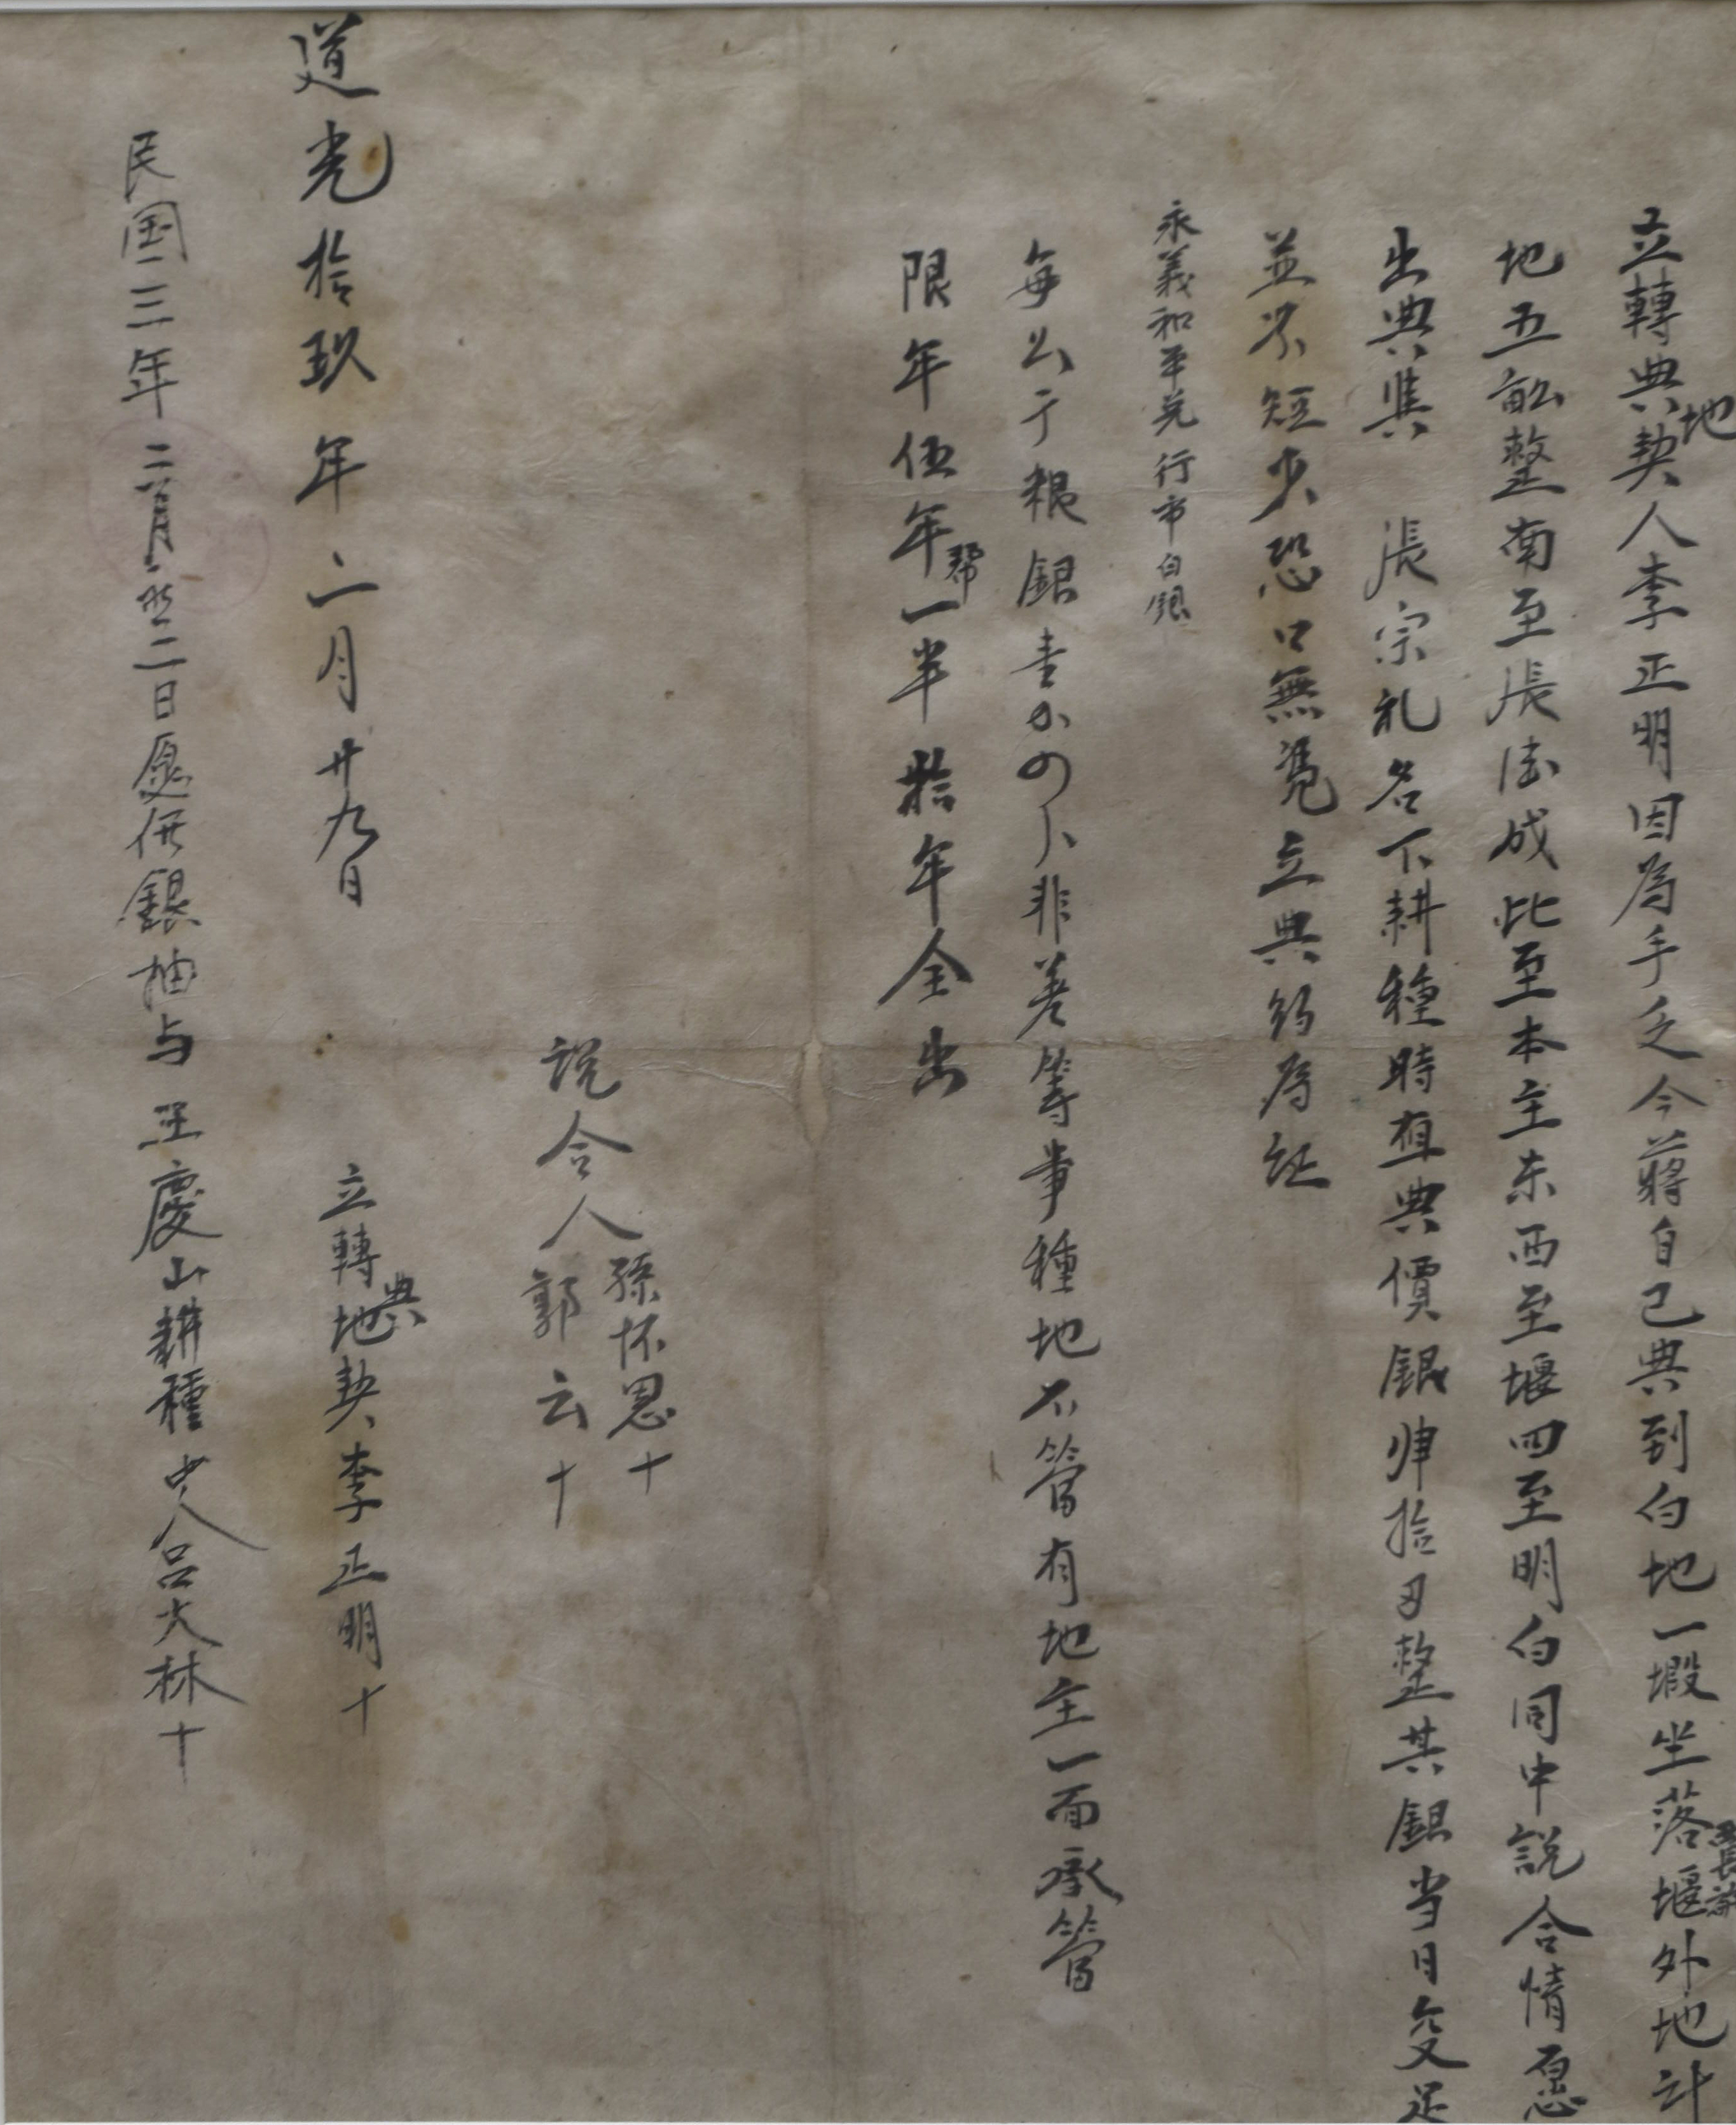 立轉典地契人李正明因為手乏今蔣自己典到白地一塅坐落堰外地計
地五畝整南至張法成北至本主东西至堰四至明白同中說合情愿
出典與張宗礼名下耕種時值典價銀肆拾刄整其銀当日交足
並不短少恐口無凴立典約為証
永義和平兑行市白銀
每年粮銀非差等事種地不管有地主一面承管
限年伍年帮一半拾年全出
説合人
孫怀恩十
郭云十
道光拾玖年二月廿九日
立轉典地契李正明十
民国三年二月初二日愿併銀抽与王慶山耕種中人吕大林十